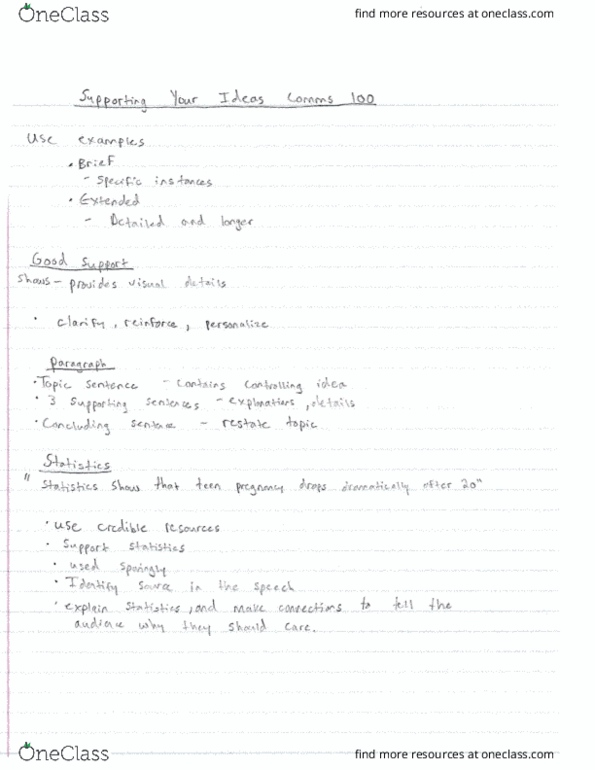 OneClass
find more resources at oneclass.com
Supporting Your Ideas Comms 100
Use examples
• Brief
- Specific instances
• Extended
- Detailed and longer
Good Support
Shows - provides visual details
• clarify, reinforce, personalize
Paragraph
• Topic sentence - contains controlling idea
• 3 supporting sentences - explanations, details
• Concluding sentence - restate topic
Statistics
"Statistics show that teen pregnancy drops dramatically after 20"
• use credible resources
• Support statistics
• used sparingly
• Identify source in the speech
• explain statistics, and make connections to tell the
audience why they should care.
OneClass
find more resources at oneclass.com